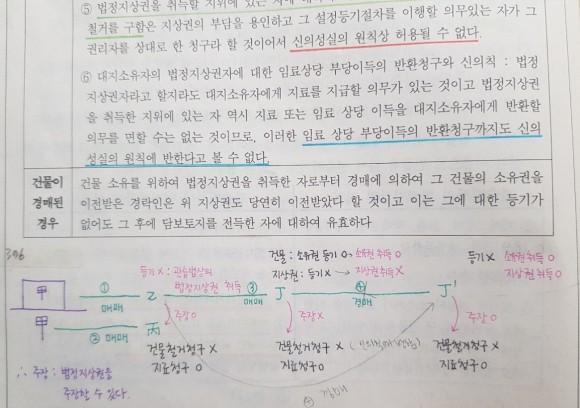 ⑤ 법정지상권을 취득할 지위에 있는 자에
철거를 구함은 지상권의 부담을 용인하고 그 설정등기절차를 이행할 의무있는 자가 그
권리자를 상대로 한 청구라 할 것이어서 신의성실의 원칙상 허용될 수 없다.
⑥ 대지소유자의 법정지상권자에 대한 임료상당 부당이득의 반환청구와 신의칙 : 법정
지상권자라고 할지라도 대지소유자에게 지료를 지급할 의무가 있는 것이고 법정지상권
을 취득한 지위에 있는 자 역시 지료 또는 임료 상당 이득을 대지소유자에게 반환할
의무를 면할 수는 없는 것이므로, 이러한 임료 상당 부당이득의 반환청구까지도 신의
성실의 원칙에 반한다고 볼 수 없다.
건물이
경매된
경우
건물 소유를 위하여 법정지상권을 취득한 자로부터 경매에 의하여 그 건물의 소유권을
이전받은 경락인은 위 지상권도 당연히 이전받았다 할 것이고 이는 그에 대한 등기가
없어도 그 후에 담보토지를 전득한 자에 대하여 유효하다
396
건물 : 소유권 등기 O → 소유권 취득 O
지상권 : 등기 X → 지상권취득 X
등기 X 소유권 취득 O
지상권 취득 O
등기 X : 관습법상의
법정지상권 취득
甲 ① 매매 乙 ③ 매매 丁 ④ 경매 丁'
甲 ② 매매 丙
주장 O
주장 X
주장 O
건물철거청구 X
지료청구 O
건물철거청구 X
지료청구 O
건물철거청구 X
지료청구 O
∴ 주장 : 법정지상권을
주장할 수 있다.
④ 경매